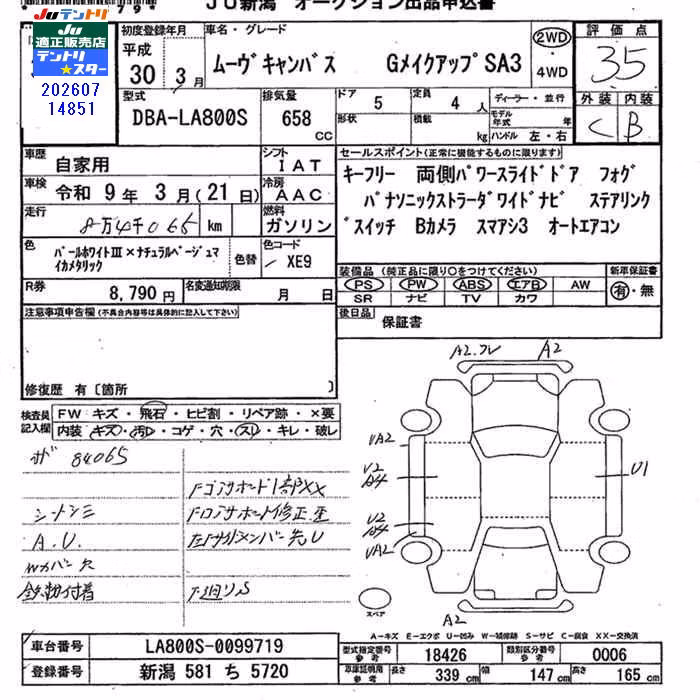 JU新潟 オークション出品申込書
JUテントリ
適正販売店
テントリ
スター
202607
14851
初度登録年月
平成
30年 3月
車名・グレード
ムーヴキャンバス GメイクアップSA3
2WD
・
4WD
評価点
3.5
外装 内装
C B
型式
DBA-LA800S
排気量
658
CC
ドア
5
形状
定員
4人
積載
kg
ディーラー・並行
モデル
年式 年
ハンドル 左・右
車歴
自家用
シフト
IAT
車検
令和 9年 3月(21日)
冷房
AAC
走行
8万4千065 km
燃料
ガソリン
色
パールホワイトIII×ナチュラルベージュマ
イカメタリック
色替
色コード
XE9
R券
8,790円
名変通知期限
月 日
セールスポイント(正常に機能するものに限ります)
キーフリー 両側パワースライドドア フォグ
パナソニックストラーダワイドナビ ステアリンク
スイッチ Bカメラ スマアシ3 オートエアコン
装備品(純正品に限り○をつけてください)
PS PW ABS エアB AW
SR ナビ TV カワ
新車保証書
有・無
後日品
保証書
注意事項申告欄(不具合内容等は具体的に記入して下さい)
修復歴 有〔箇所 〕
検査員
記入欄
FW キズ・飛石・ヒビ割・リペア跡・×要
内装 キズ・汚レ・コゲ・穴・スレ・キレ・破レ
84065
FコアサポートI部XX
シートシミ
Fロアサポート修正歪
A.U.
左Fサイドメンバー先U
Wカバー欠
鉄粉付着
下廻りS
A2.フレ A2
UA2
U2
A4
U1
U2
A4
UA2
A2
スペア
A-キズ E-エクボ U-凹み W-補修跡 S-サビ C-腐食 XX-交換済
車台番号
LA800S-0099719
登録番号
新潟 581 ち 5720
型式指定番号
参考
18426
類別区分番号
参考
0006
車庫証明用
参考
長さ 339 cm
幅 147 cm
高さ 165 cm